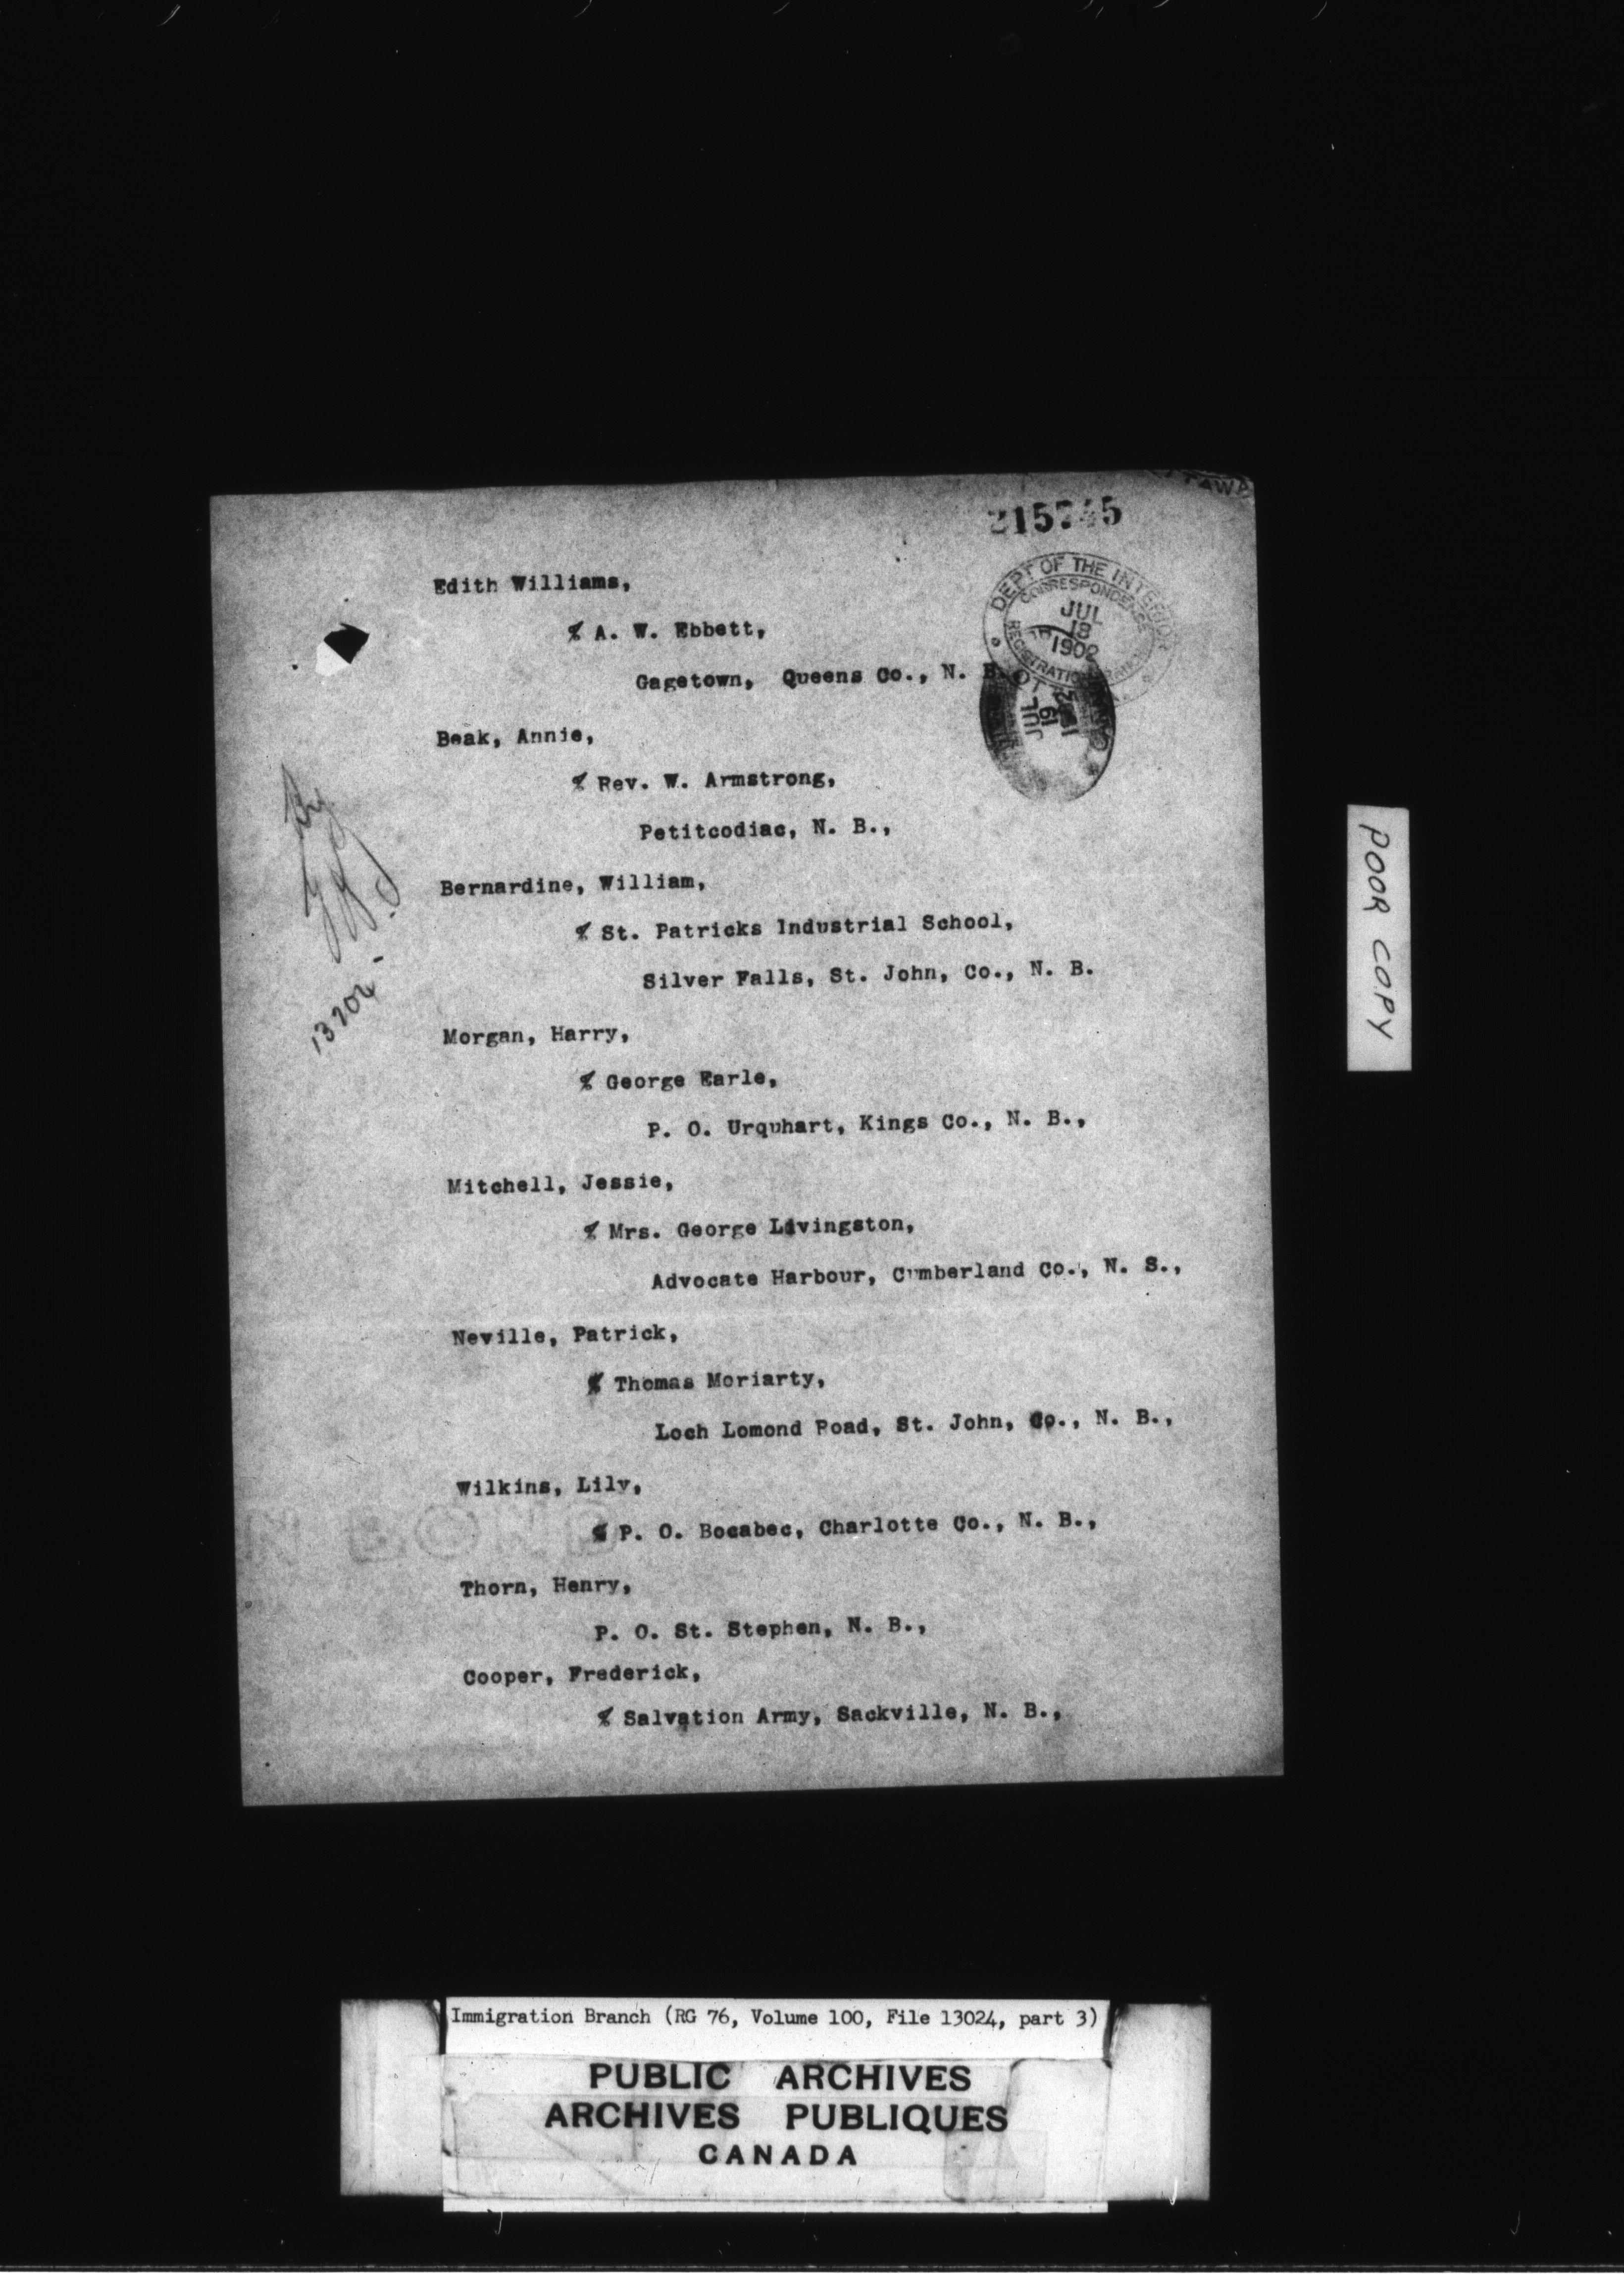 215745
DEPT OF THE INTERIOR
CORRESPONDENCE
JUL
18
1902
REGISTRATION
JUL
19
Edith Williams,
% A. W. Ebbett,
Gagetown, Queens Co., N. B.
Beak, Annie,
% Rev. W. Armstrong,
Petitcodiac, N. B.,
Bernardine, William,
% St. Patricks Industrial School,
Silver Falls, St. John, Co., N. B.
Morgan, Harry,
% George Earle,
P. O. Urquhart, Kings Co., N. B.,
Mitchell, Jessie,
% Mrs. George Livingston,
Advocate Harbour, Cumberland Co., N. S.,
Neville, Patrick,
% Thomas Moriarty,
Loch Lomond Road, St. John, Co., N. B.,
Wilkins, Lily,
% P. O. Bocabec, Charlotte Co., N. B.,
Thorn, Henry,
P. O. St. Stephen, N. B.,
Cooper, Frederick,
% Salvation Army, Sackville, N. B.,
POOR COPY
Immigration Branch (RG 76, Volume 100, File 13024, part 3)
PUBLIC ARCHIVES
ARCHIVES PUBLIQUES
CANADA